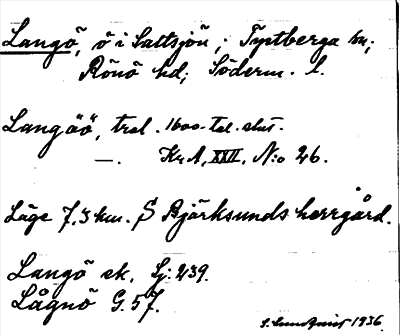 Langö, ö i Saltsjön; Tystberga sn;
Rönö hd; Söderm. l.
Langöö, trol. 1600-tal. slut.
—. Kr. A, XXII, N:o 26.
Läge 7,3 km. S Björksunds herrgård.
Langö ek. Sj: 239.
Lågnö G. 57.
S. Lundqvist 1936